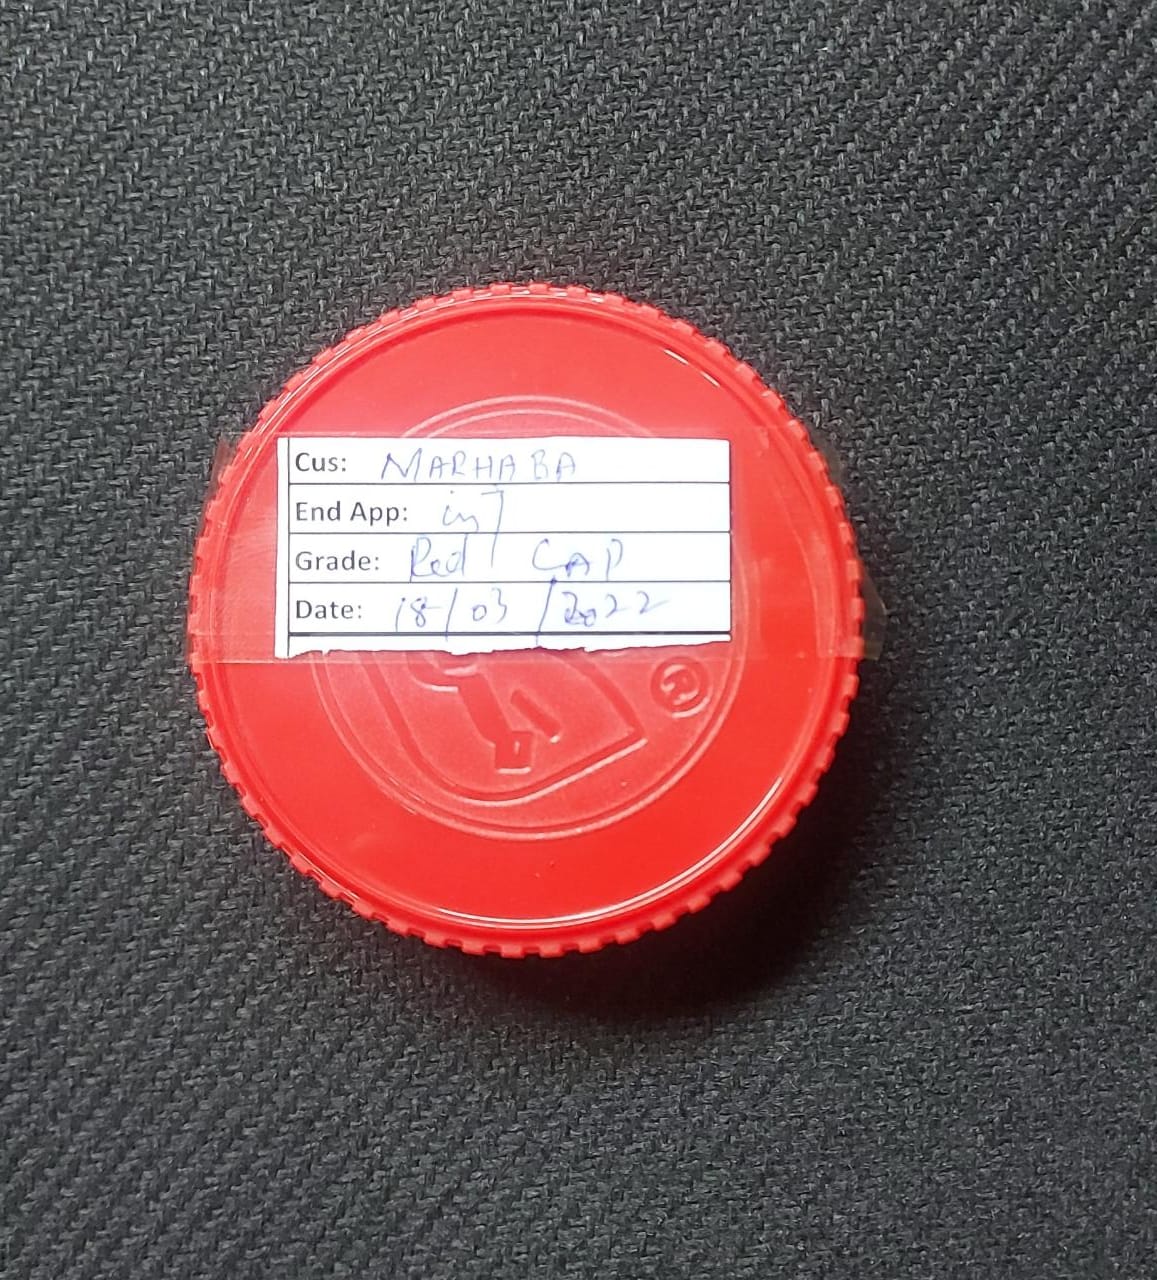 Cus: MARHABA
End App: inj
Grade: Red CAP
Date: 18/03/2022
®